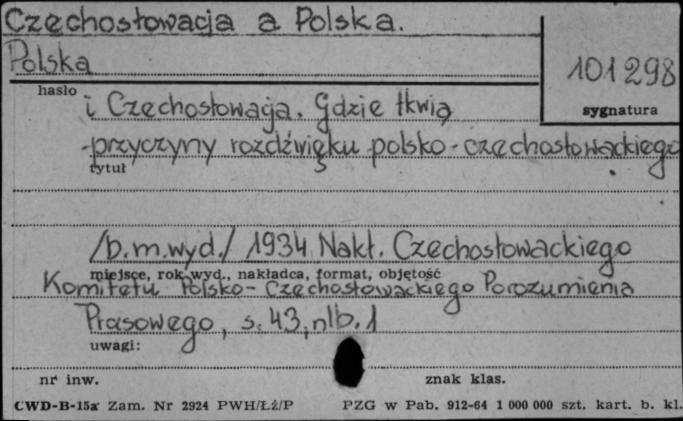 Czechosłowacja a Polska.
Polska
101298
hasło
sygnatura
i Czechosłowacja. Gdzie tkwią
przyczyny rozdźwięku polsko-czechosłowackiego
tytuł
/b.m.wyd./ 1934 Nakł. Czechosłowackiego
miejsce, rok wyd., nakładca, format, objętość
Komitetu Polsko-Czechosłowackiego Porozumienia
Prasowego, s. 43, nlb. 1
uwagi:
nr inw. znak klas.
CWD-B-15a Zam. Nr 2924 PWH/Łź/P PZG w Pab. 912-64 1 000 000 szt. kart. b. kl.